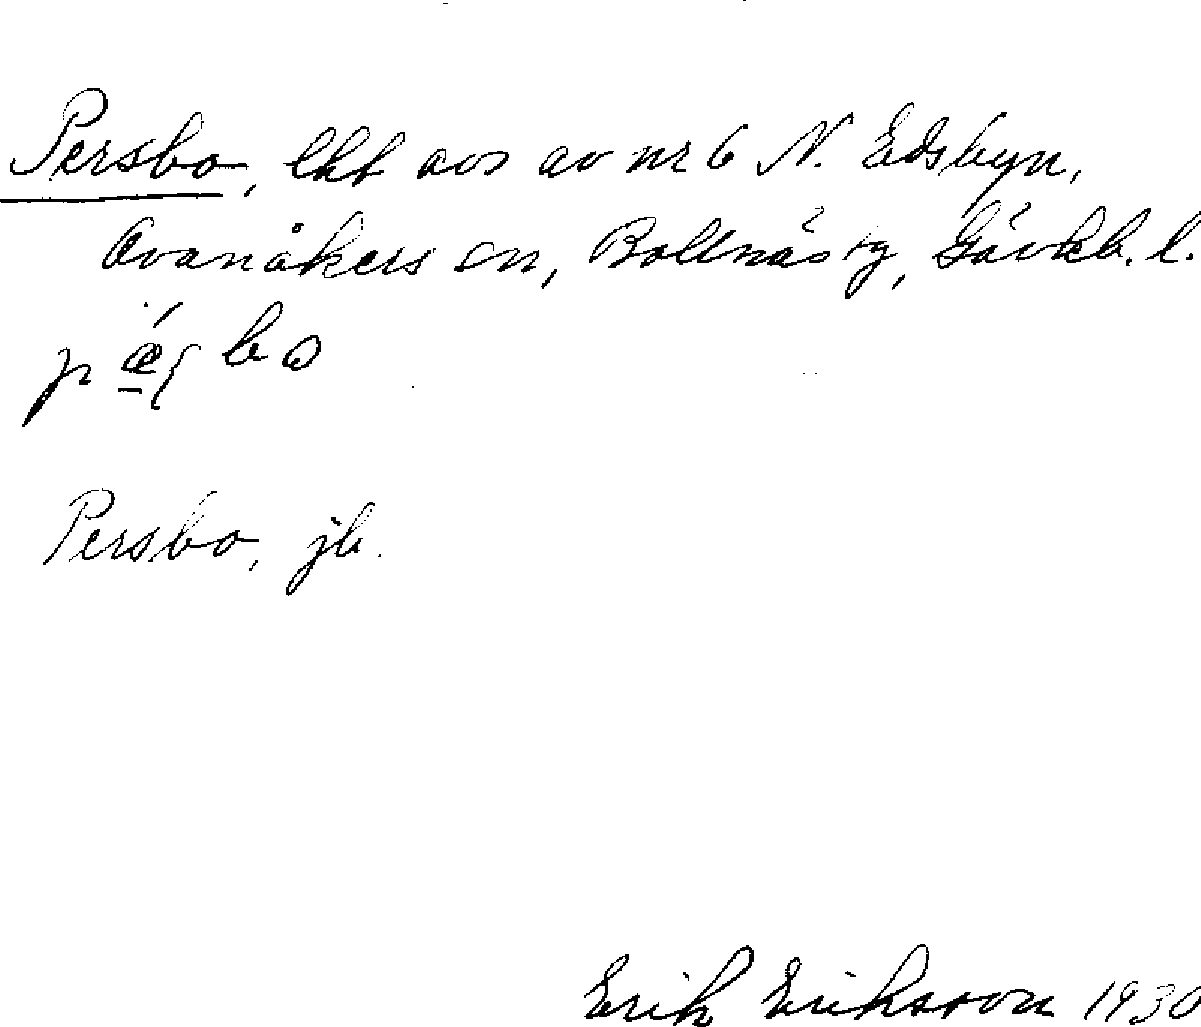 Persbo, lht avs av nr 6 N. Edsbyn,
Ovanåkers sn, Bollnäs tg, Gävleb. l.
Persbo, jb.
Erik Eriksson 1930